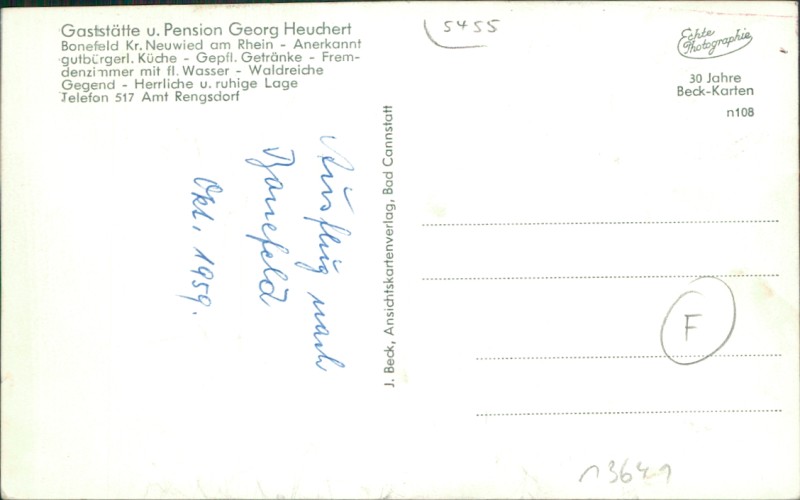 Gaststätte u. Pension Georg Heuchert
Bonefeld Kr. Neuwied am Rhein - Anerkannt
gutbürgerl. Küche - Gepfl. Getränke - Frem-
denzimmer mit fl. Wasser - Waldreiche
Gegend - Herrliche u. ruhige Lage
Telefon 517 Amt Rengsdorf
5455
Echte
Photographie
30 Jahre
Beck-Karten
n108
Ausflug nach
Bonefeld
Okt. 1959.
J. Beck, Ansichtskartenverlag, Bad Cannstatt
F
13641